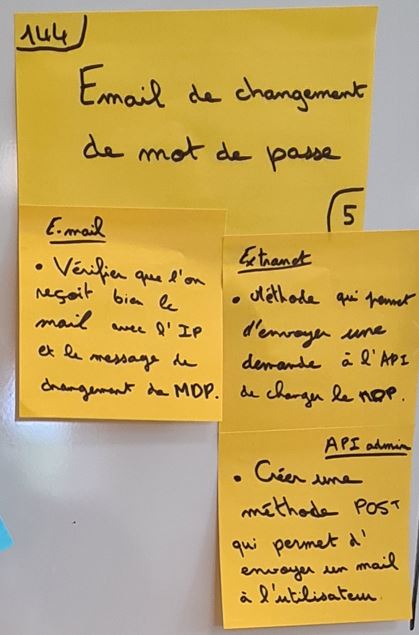 144
Email de changement
de mot de passe
5
E-mail
• Vérifier que l'on
reçoit bien le
mail avec l'IP
et le message de
changement de MDP.
Extranet
• Méthode qui permet
d'envoyer une
demande à l'API
de changer le MDP.
API admin
• Créer une
méthode POST
qui permet d'
envoyer un mail
à l'utilisateur.